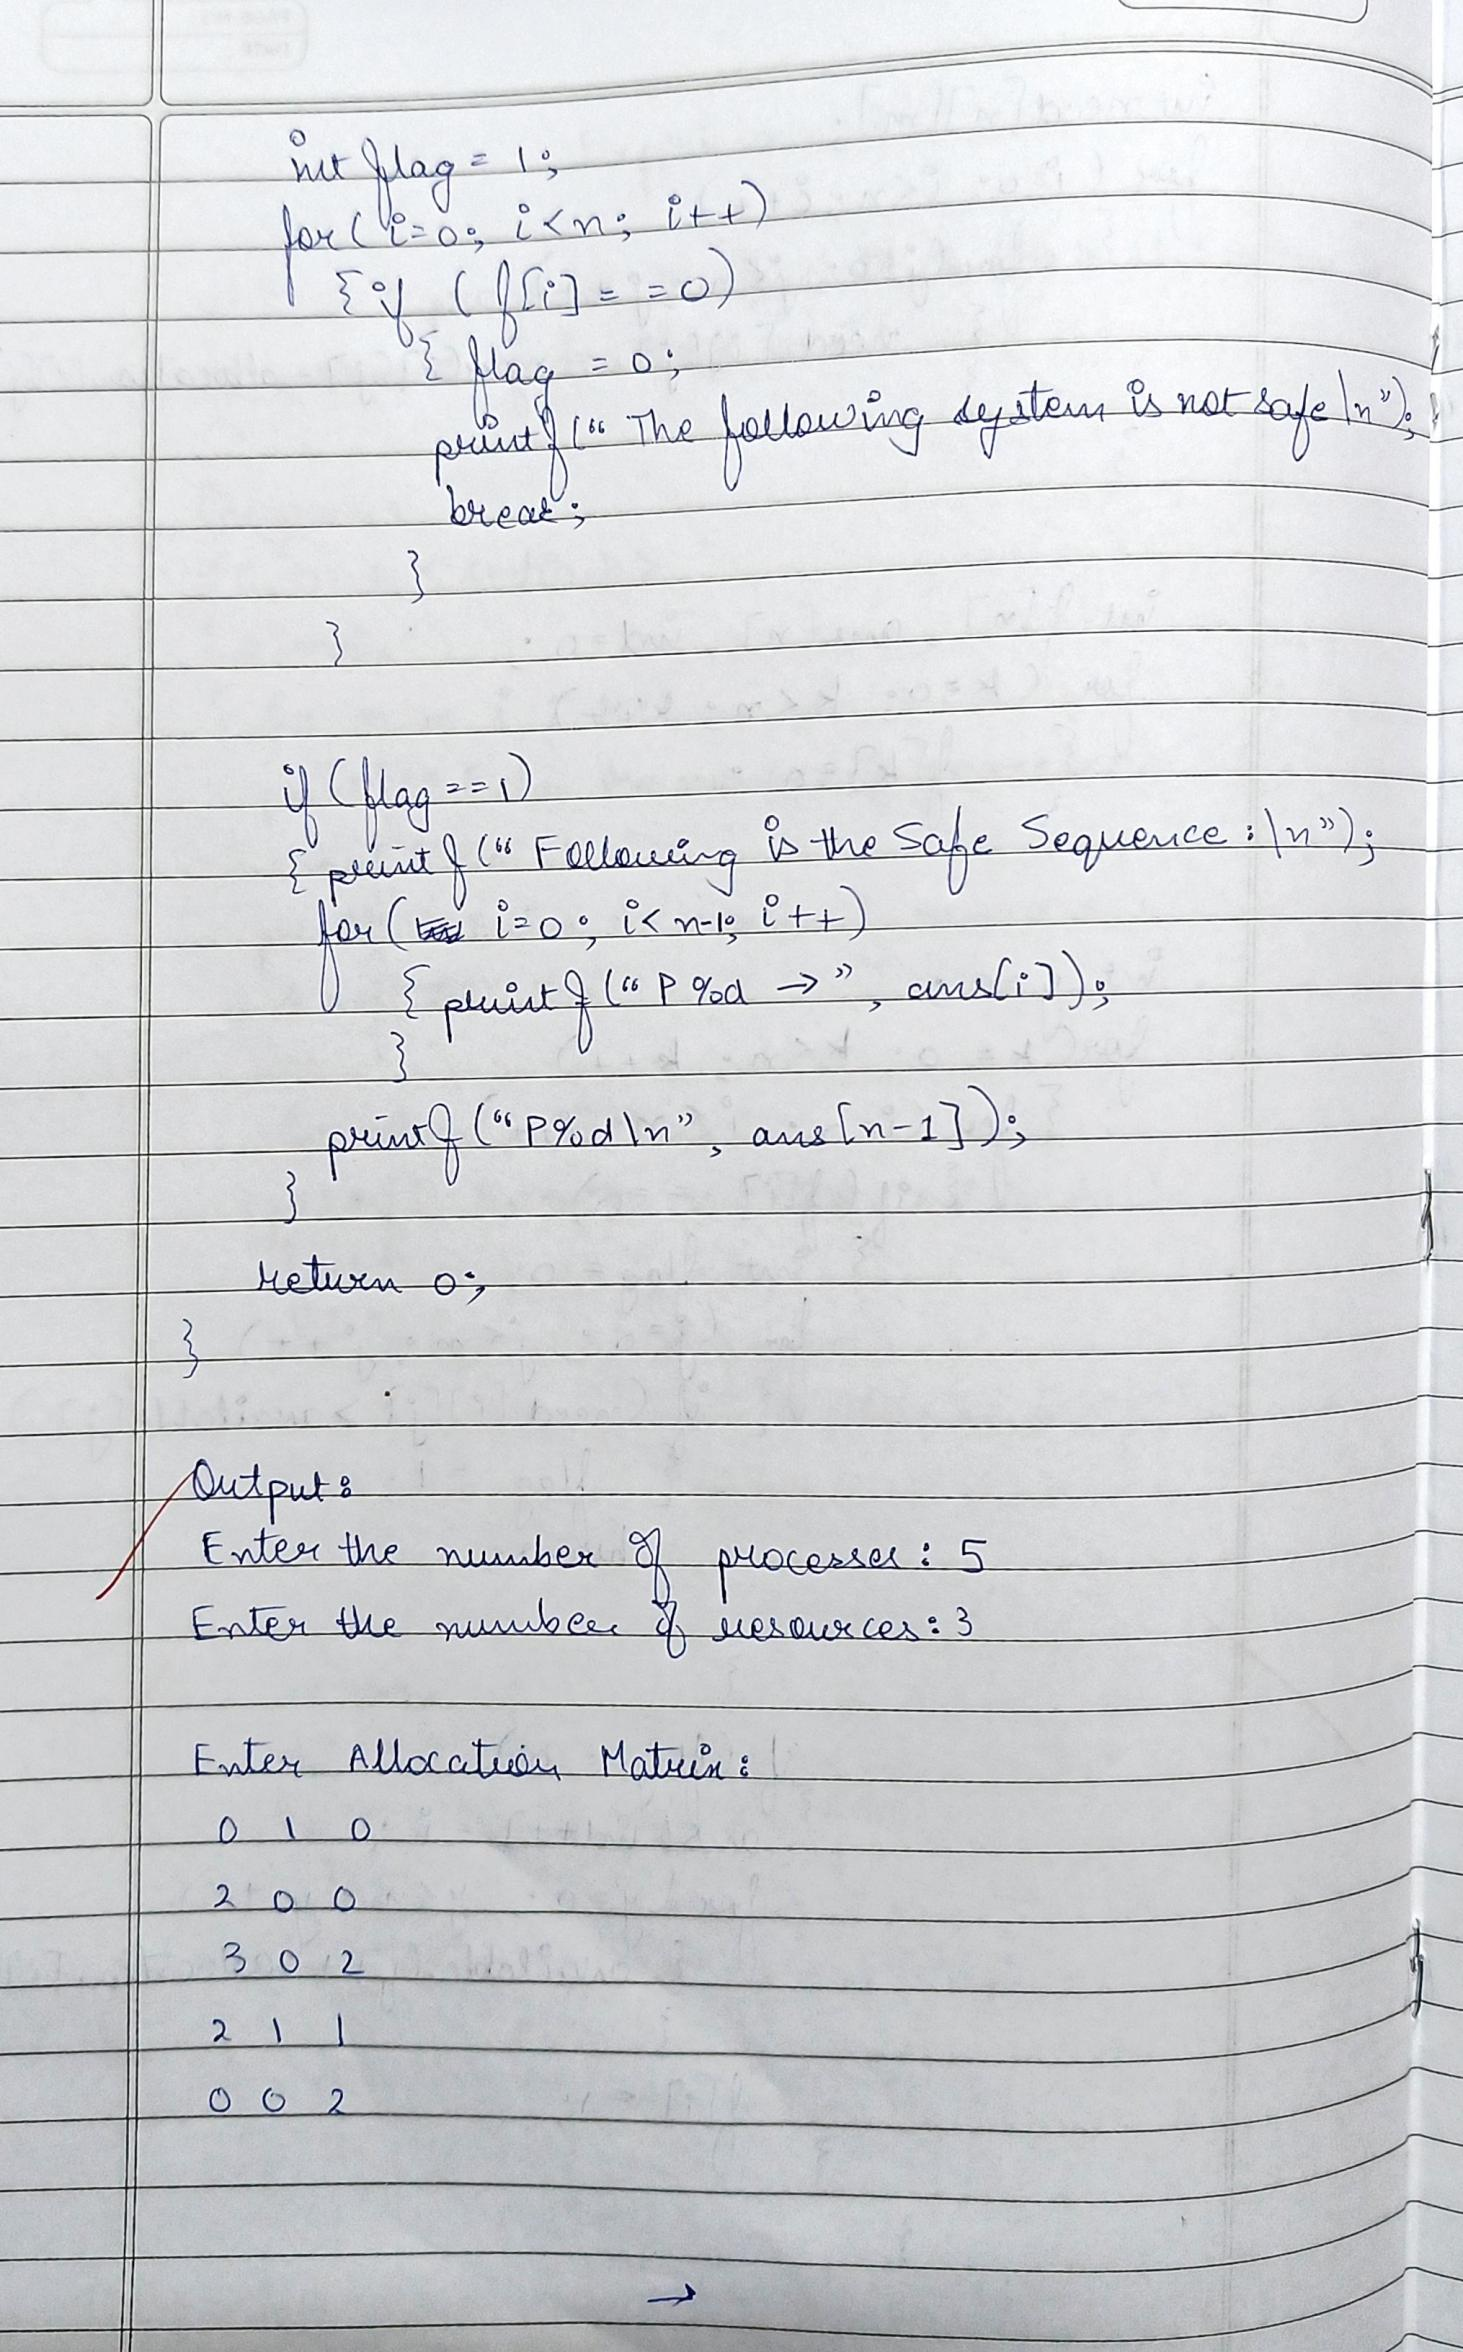 int flag = 1;
for( i=0; i<n; i++)
{if (f[i]==0)
{ flag = 0;
printf(“ The following system is not safe\n”);
break;
}
}
if (flag==1)
{ printf(“ Following is the Safe Sequence :\n”);
for( i=0; i<n-1; i++)
{ printf(“ P %d →”, ans[i]);
}
printf(“P%d\n”, ans[n-1]);
}
return 0;
}
Output:
Enter the number of processes: 5
Enter the number of resources: 3
Enter Allocation Matrix:
0 1 0
2 0 0
3 0 2
2 1 1
0 0 2
→